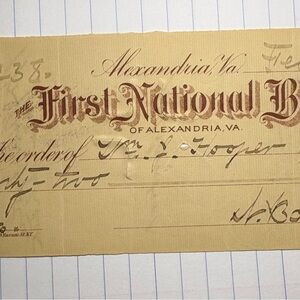 238. Alexandria, Va. Fe
THE First National B
OF ALEXANDRIA, VA.
e order of Wm. J. Hooper
ty-two